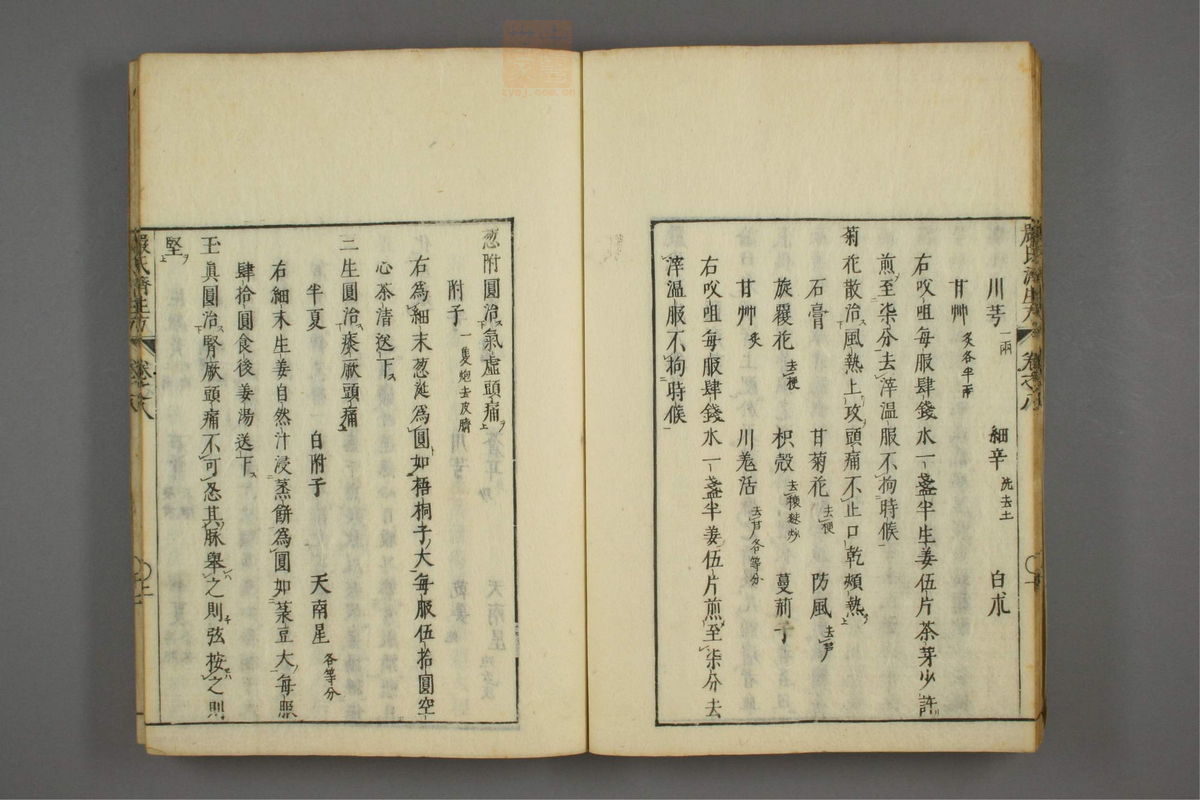 川芎一兩 細辛洗去土 白朮
甘艸炙各半兩
右㕮咀每服肆錢水一盞半生姜伍片茶芽少許
煎至柒分去滓溫服不拘時候
菊花散治風熱上攻頭痛不止口乾頰熱
石膏 甘菊花去梗 防風去芦
旋覆花去梗 枳殼去穰麩炒 蔓荊子
甘艸炙 川羗活去芦各等分
右㕮咀每服肆錢水一盞半姜伍片煎至柒分去
滓溫服不拘時候
葱附圓治氣虛頭痛
附子一隻炮去皮臍
右爲細末葱涎爲圓如梧桐子大每服伍拾圓空
心茶清送下
三生圓治痰厥頭痛
半夏 白附子 天南星各等分
右細末生姜自然汁浸蒸餅爲圓如菉豆大每服
肆拾圓食後姜湯送下
玉眞圓治腎厥頭痛不可忍其脉舉之則弦按之則
堅
嚴氏濟生方 卷之八
zysj.com.cn